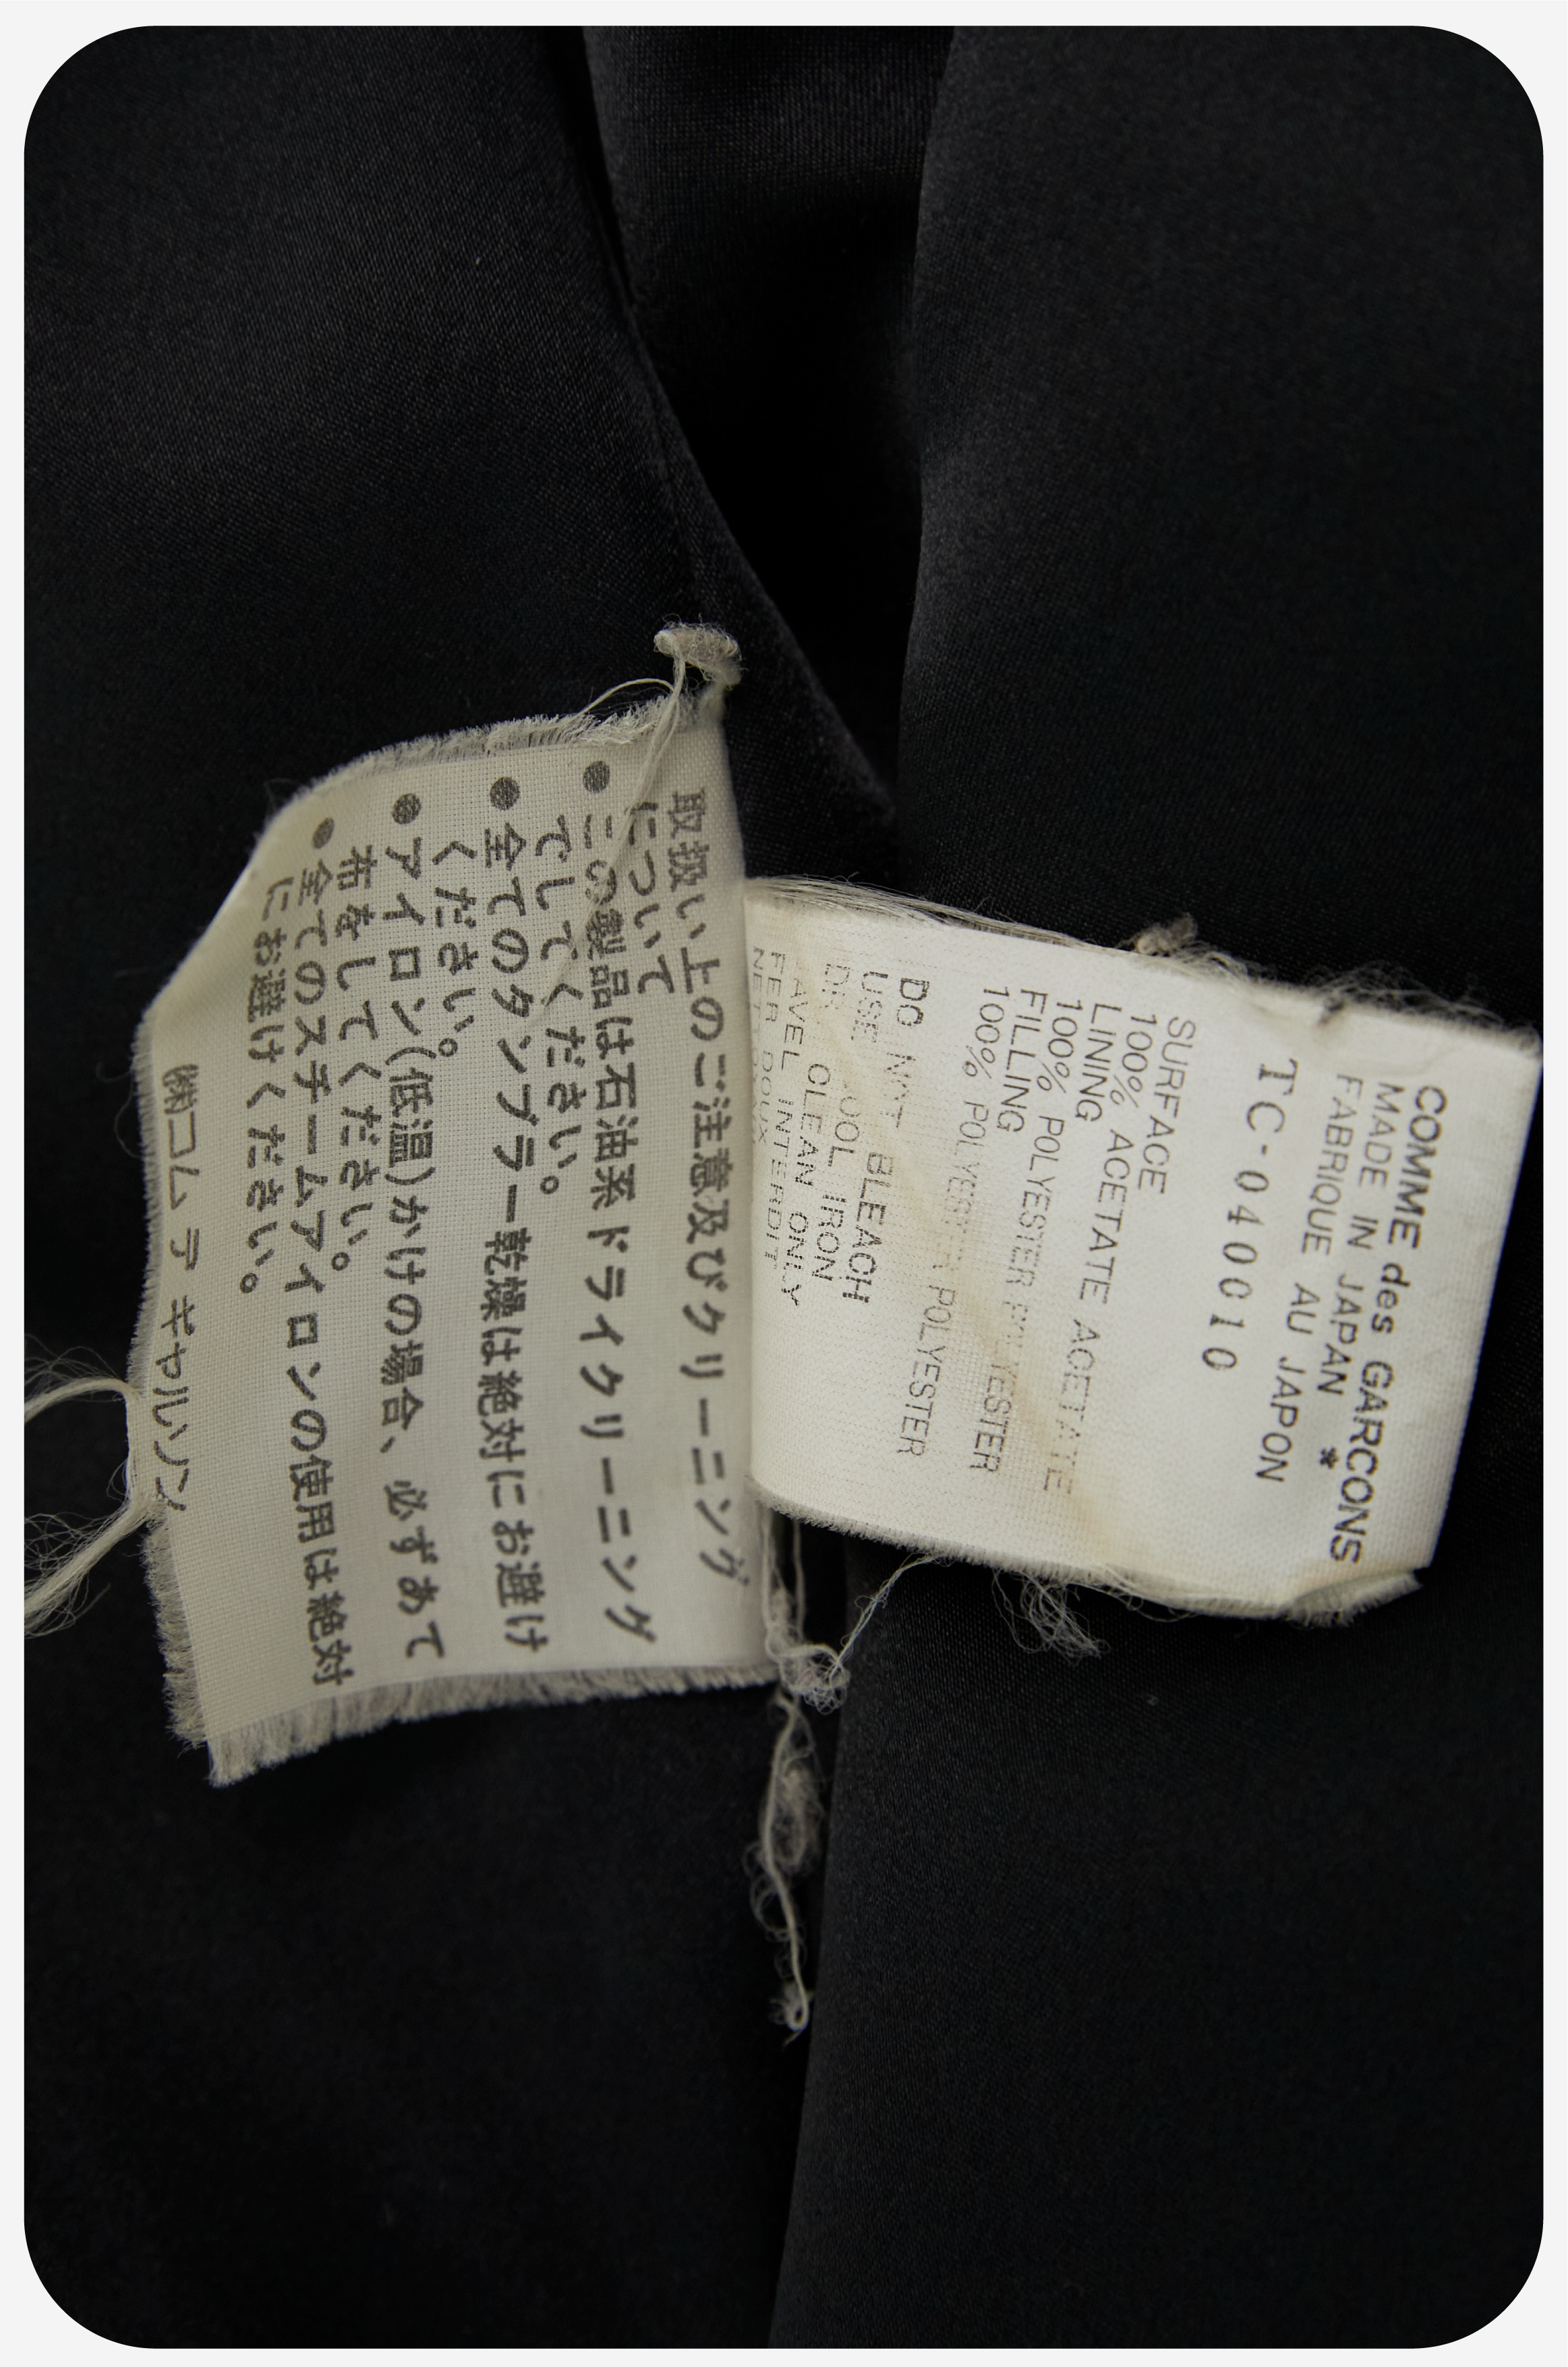 取扱い上のご注意及びクリーニング
について
●この製品は石油系ドライクリーニング
でしてください。
●全てのタンブラー乾燥は絶対にお避け
ください。
●アイロン(低温)かけの場合、必ずあて
布をしてください。
●全てのスチームアイロンの使用は絶対
にお避けください。
㈱コム デ ギャルソン
COMME des GARCONS
MADE IN JAPAN *
FABRIQUE AU JAPON
TC-040010
SURFACE
100% ACETATE ACETATE
LINING
100% POLYESTER POLYESTER
FILLING
100% POLYESTER POLYESTER
DO NOT BLEACH
USE IRON
CLEAN ONLY
INTERDIT
FER DOUX